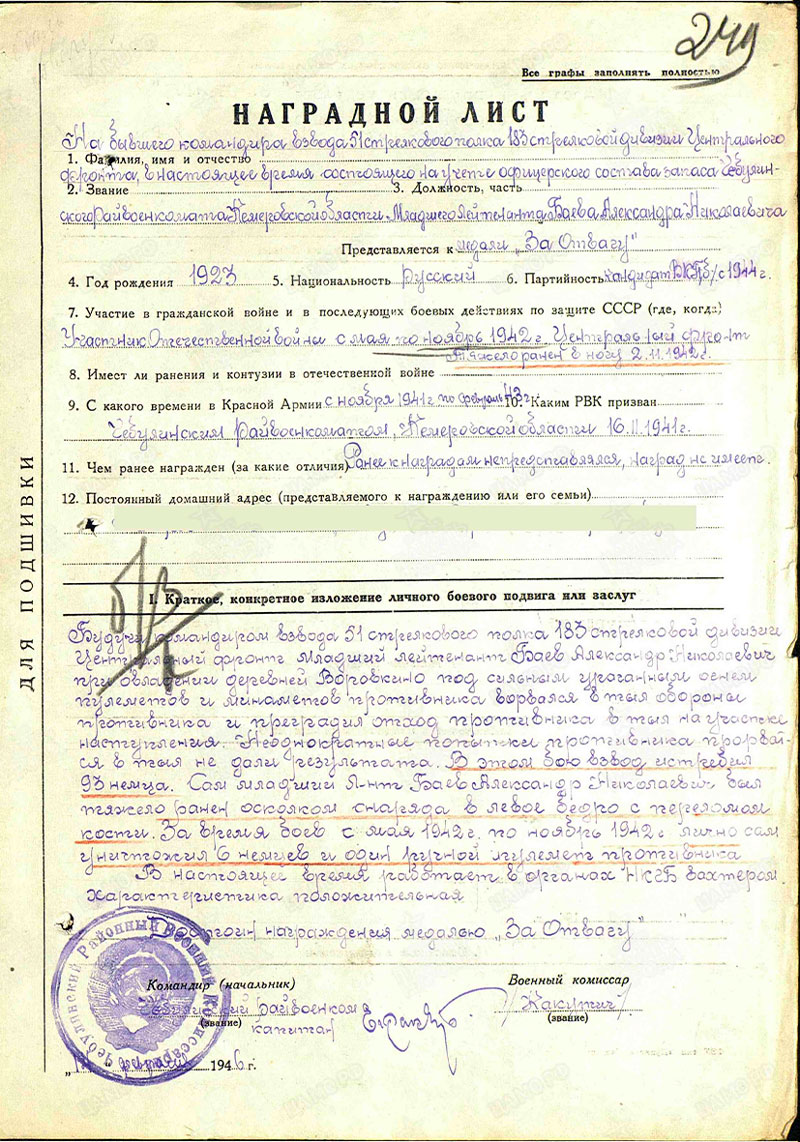 249
Все графы заполнять полностью
НАГРАДНОЙ ЛИСТ
На бывшего командира взвода 51 стрелкового полка 183 стрелковой дивизии Центрального
1. Фамилия, имя и отчество
фронта, в настоящее время состоящего на учете офицерского состава запаса Чебулин-
2. Звание 3. Должность, часть
ского райвоенкомата Кемеровской области Младшего лейтенанта Баева Александра Николаевича
Представляется к медали „За Отвагу"
4. Год рождения 1923 5. Национальность русский 6. Партийность кандидат ВКП/б/ с 1944 г.
7. Участие в гражданской войне и в последующих боевых действиях по защите СССР (где, когда)
Участник Отечественной войны с мая по ноябрь 1942 г. Центральный фронт
тяжело ранен в ногу 2.11.1942 г.
8. Имеет ли ранения и контузии в отечественной войне
9. С какого времени в Красной Армии с ноября 1941 г по февраль 43 г 10. Каким РВК призван
Чебулинским райвоенкоматом, Кемеровской области 16.11.1941г.
11. Чем ранее награжден (за какие отличия) Ранее к наградам не представлялся, наград не имеет.
12. Постоянный домашний адрес (представляемого к награждению или его семьи)
ДЛЯ ПОДШИВКИ
I. Краткое, конкретное изложение личного боевого подвига или заслуг
Будучи командиром взвода 51 стрелкового полка 183 стрелковой дивизии
Центральный фронт Младший лейтенант Баев Александр Николаевич
при овладении деревней Воровкино под сильным ураганным огнем
пулеметов и минаметов противника ворвался в тыл обороны
противника и преградил отход противника в тыл на участке
наступления. Неоднократные попытки противника прорват-
ся в тыл не дали результата. В этом бою взвод истребил
93 немца. Сам младший л-нт Баев Александр Николаевич был
тяжело ранен осколком снаряда в левое бедро с переломом
кости. За время боев с мая 1942 г. по ноябрь 1942 г лично сам
уничтожил 6 немцев и один ручной пулемет противника
В настоящее время работает в органах НКГБ вахтером
характеристика положительная
Достоин награждения медалью „За Отвагу"
Командир (начальник) Военный комиссар
Чебулинский райвоенком
(звание) капитан (звание)
Чебулинский Районный Военный Комиссариат
1946 г.